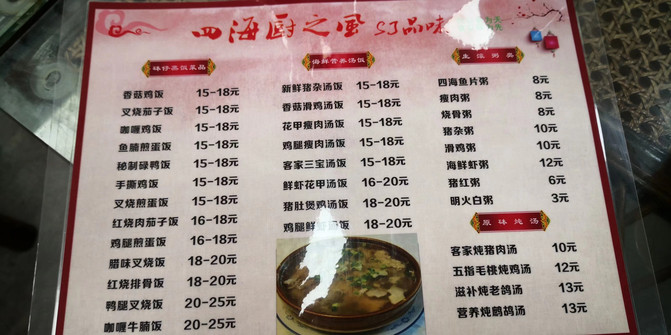 四海厨之风 SJ品味
钵仔蒸饭菜品
香菇鸡饭 15-18元
叉烧茄子饭 15-18元
咖喱鸡饭 15-18元
鱼腩煎蛋饭 15-18元
秘制碌鸭饭 15-18元
手撕鸡饭 15-18元
叉烧煎蛋饭 15-18元
红烧肉茄子饭 16-18元
鸡腿煎蛋饭 16-18元
腊味叉烧饭 18-20元
红烧排骨饭 18-20元
鸭腿叉烧饭 20-25元
咖喱牛腩饭 20-25元
海鲜营养汤饭
新鲜猪杂汤饭 15-18元
香菇滑鸡汤饭 15-18元
花甲瘦肉汤饭 15-18元
鸡腿瘦肉汤饭 15-18元
客家三宝汤饭 15-18元
鲜虾花甲汤饭 16-20元
猪肚煲鸡汤饭 18-20元
鸡腿鲜虾汤饭 18-20元
生滚粥品
四海鱼片粥 8元
瘦肉粥 8元
烧骨粥 8元
猪杂粥 10元
滑鸡粥 10元
海鲜虾粥 12元
猪红粥 6元
明火白粥 3元
原味炖汤
客家炖猪肉汤 10元
五指毛桃炖鸡汤 12元
滋补炖老鸽汤 13元
营养炖鹧鸪汤 13元